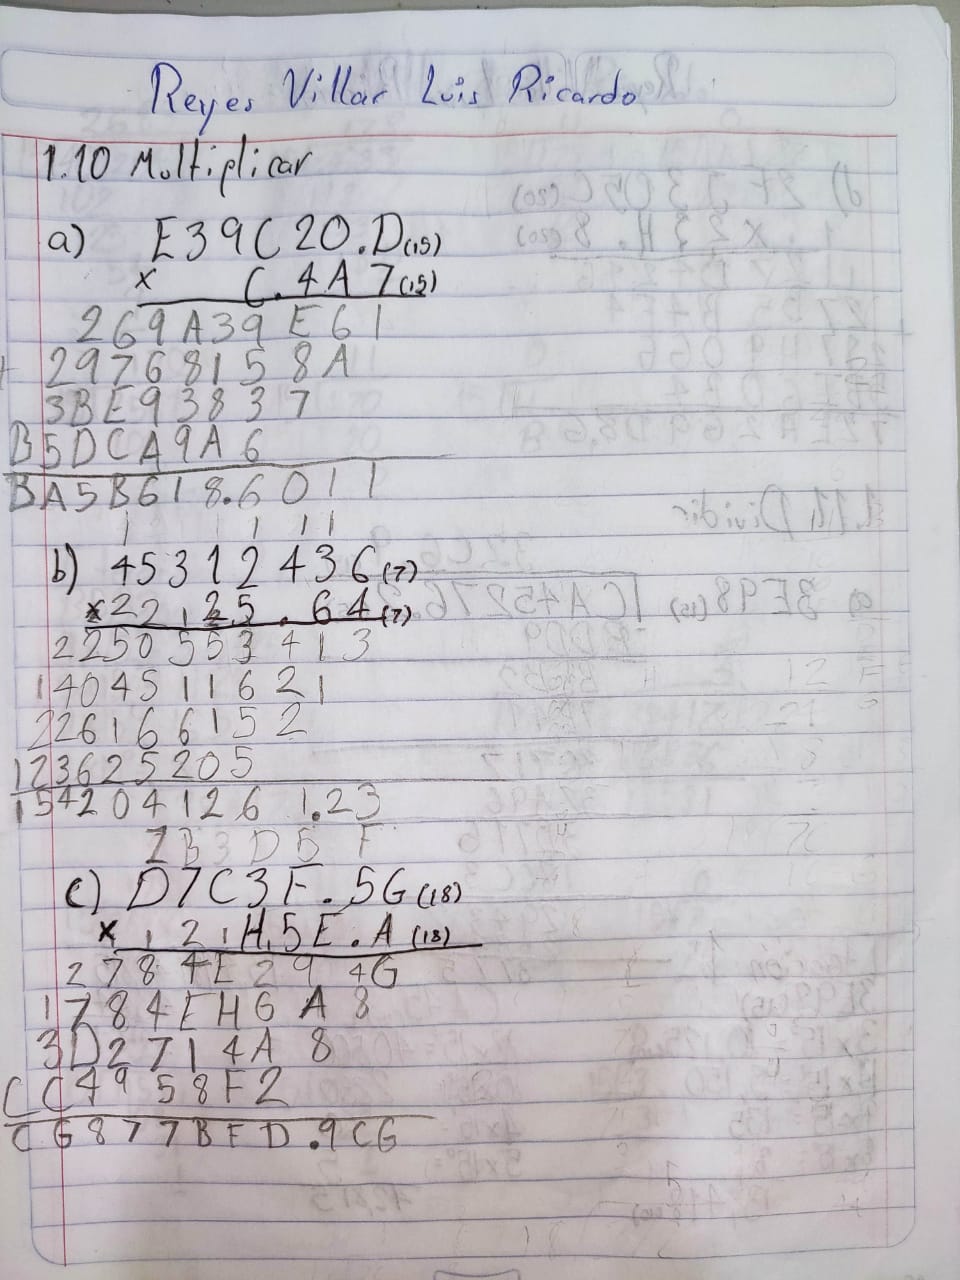 Reyes Villar Luis Ricardo
1.10 Multiplicar
a) E39C20.D(15)
x C.4A7(15)
269A39E61
+ 29768158A
3BE93837
B5DCA9A6
BA5B618.6011
1 1 1 1 1
b) 45312436(7)
x 25.64(7)
2250553413
1404511621
226166152
123625205
154204126 1.23
1B3D5F
c) D7C3F.5G(18)
x H5E.A(18)
2784E294G
1784EHGA8
3D2714A8
CC4958F2
CG877BFD.9CG